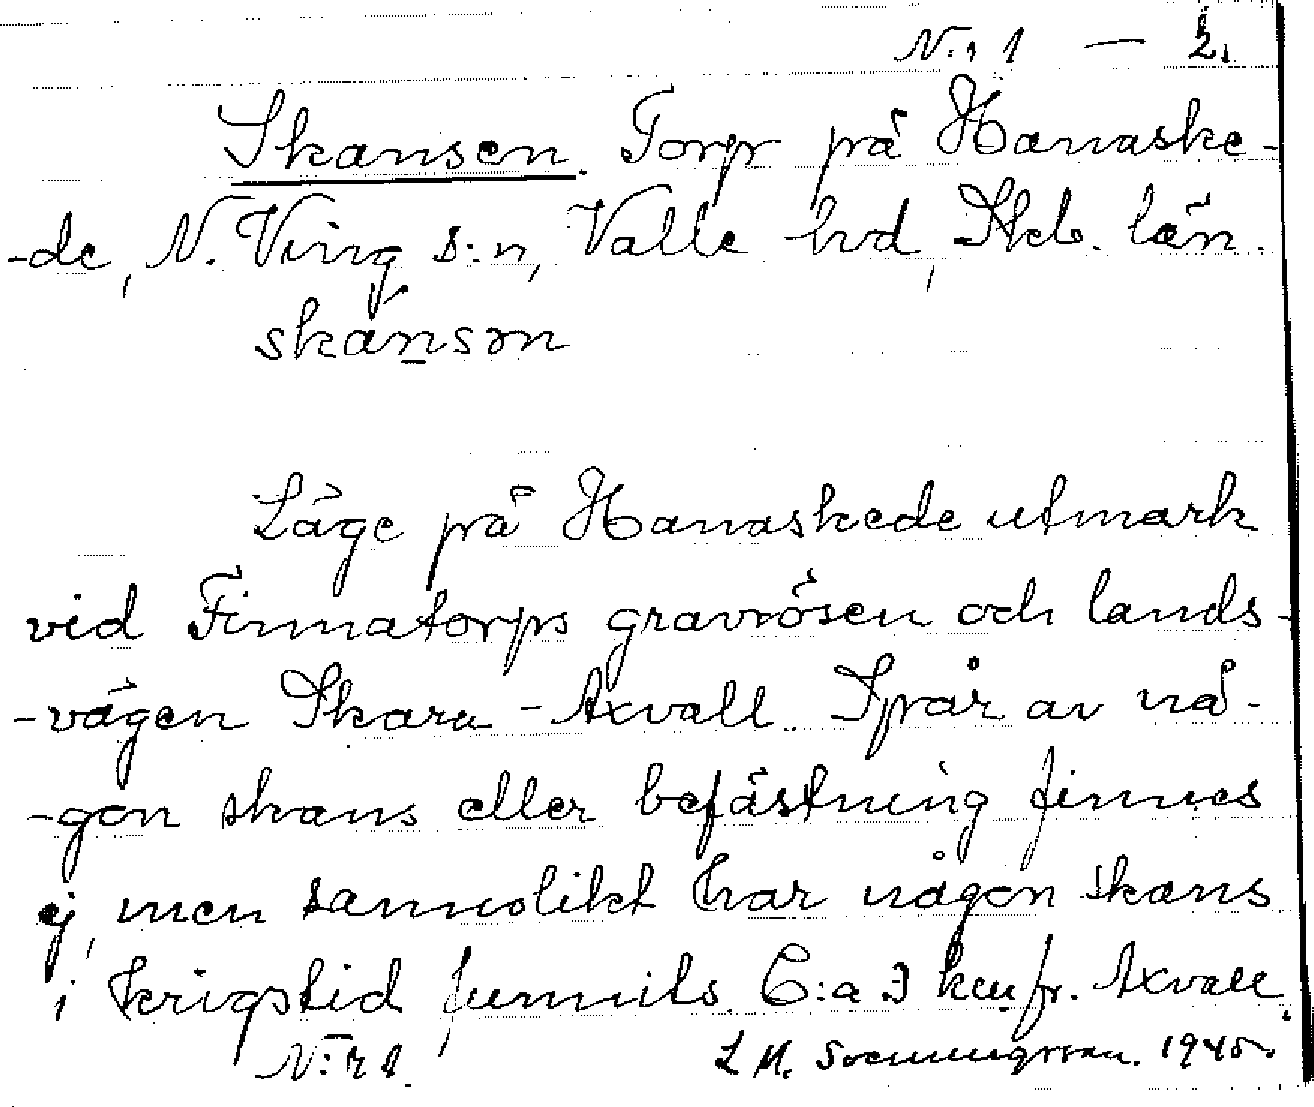 N:r 1 — 2.
Skansen. Torp på Hanaske-
-de, N. Ving s:n, Valle hd, Skb. län.
skansən
Läge på Hanaskede utmark
vid Finnatorps gravrösen och lands-
-vägen Skara - Axvall. Spår av nå-
-gon skans eller befästning finnes
ej, men sannolikt har någon skans
i krigstid funnits. C:a 3 km fr. Axvall.
N:r 1. L M. 1945.